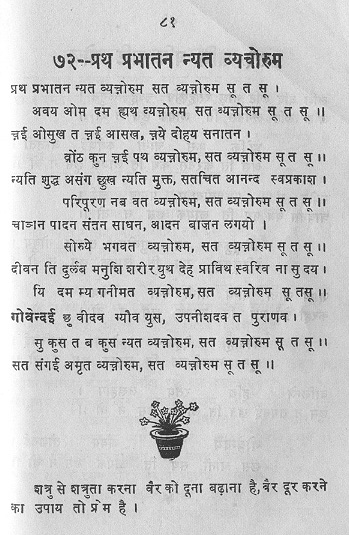 ८१
७२--प्रथ प्रभातन न्यत व्यचोरुम
प्रथ प्रभातन न्यत व्यन्नोरुम सत व्यन्नोरुम सू त सू ।
अवय ओम् दम ह्यथ व्यन्नोरुम सत व्यन्नोरुम सू त सू ॥
न्नई ओसुख त न्नई आसख, न्नये दोहय सनातन ।
व्रोंठ कुन न्नई पथ व्यन्नोरुम, सत व्यन्नोरुम सू त सू ॥
न्यति शुद्ध असंग छुख न्यति मुक्त, सतचित आनन्द स्वप्रकाश ।
परिपूरण नब वत व्यन्नोरुम, सत व्यन्नोरुम सू त सू ॥
पादन संन्नन साधन, आदन बाज़न लगयो ।
सोरुये भगवत व्यन्नोरुम, सत व्यन्नोरुम सू त सू ॥
दीवन ति दुर्लब मनुशि शरीर युथ देह प्राविथ स्वरिव ना सु दय ।
यि दम म्य गनीमत व्यन्नोरुम, सत व्यन्नोरुम सू तसू ॥
गोवेन्दई छु वीदव ग्यौव युस, उपनीशदव त पुराणव ।
सु कुस त ब कुस न्यत व्यन्नोरुम, सत व्यन्नोरुम सू त सू ॥
सत संगई अमृत व्यन्नोरुम, सत व्यन्नोरुम सू त सू ॥
शत्रु से शत्रुता करना वैर को दूना बढ़ाना है, बैर दूर करने
का उपाय तो प्रेम है ।